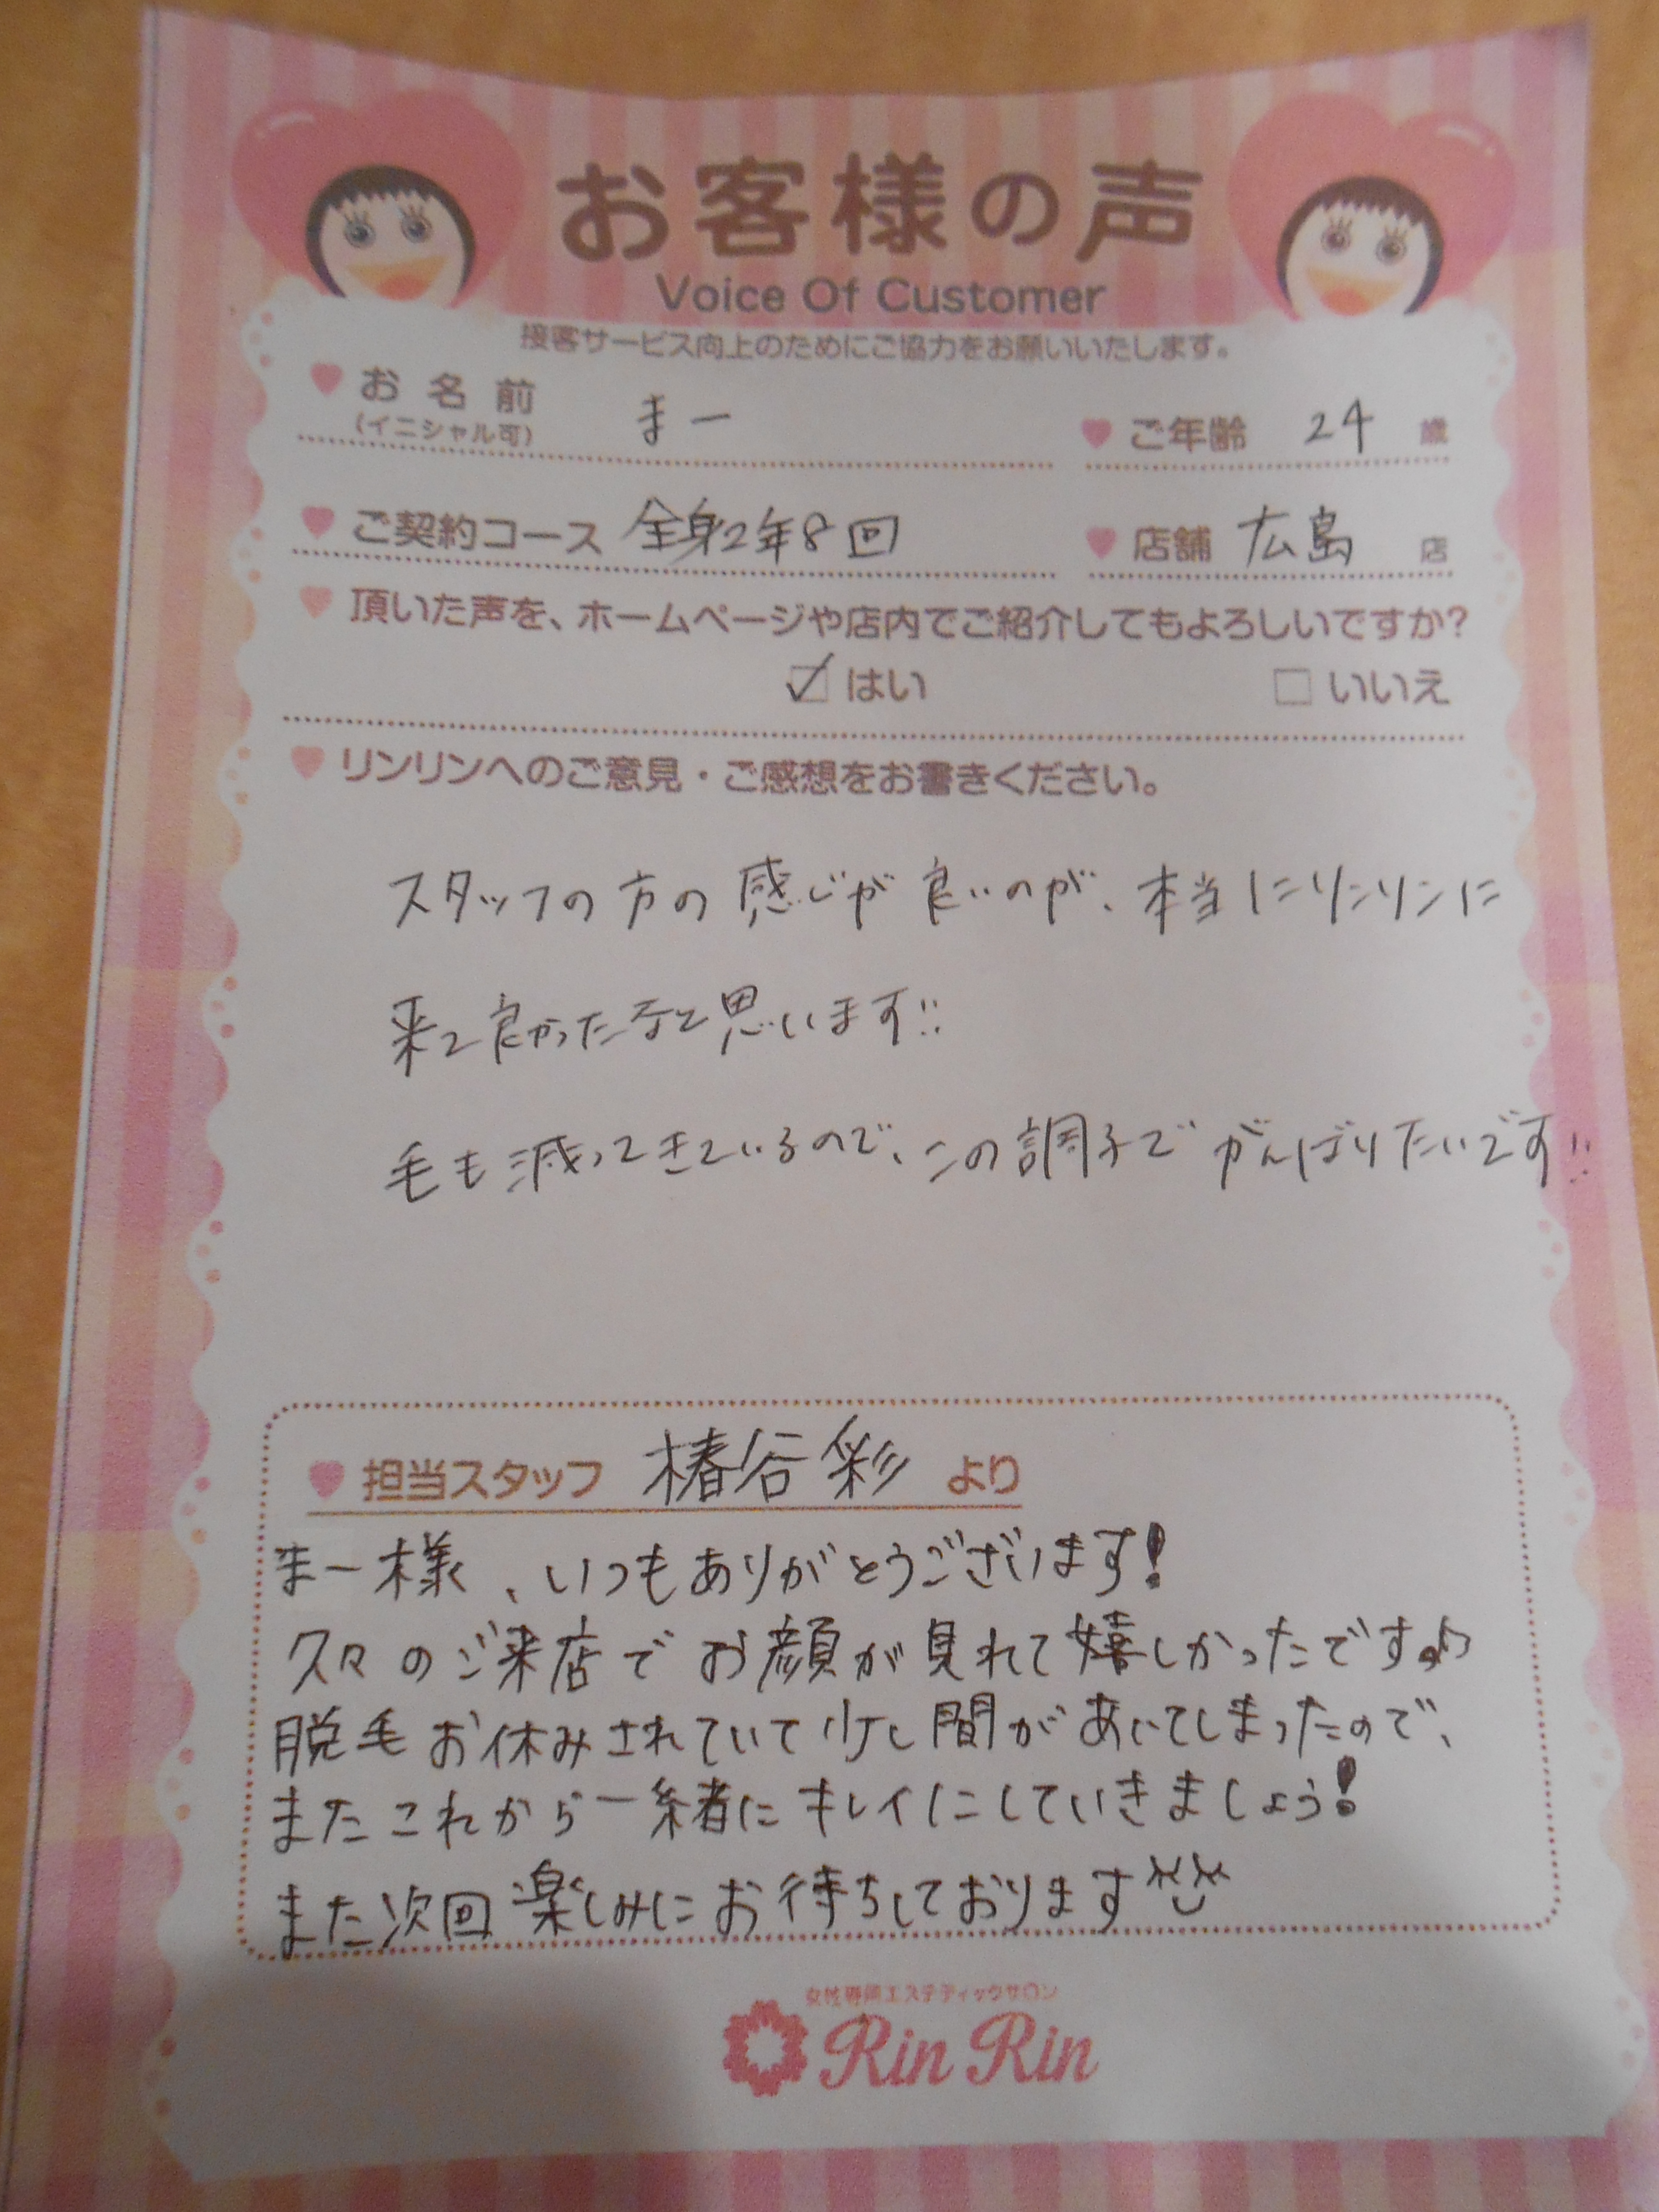 お客様の声
Voice Of Customer
接客サービス向上のためにご協力をお願いいたします。
お名前 まー
(イニシャル可)
ご年齢 24 歳
ご契約コース 全身2年8回
店舗 広島 店
頂いた声を、ホームページや店内でご紹介してもよろしいですか?
はい いいえ
リンリンへのご意見・ご感想をお書きください。
スタッフの方の感じが良いのが、本当にリンリンに
来て良かったなと思います!!
毛も減ってきているので、この調子でがんばりたいです!!
担当スタッフ 椿谷彩 より
まー様、いつもありがとうございます!
久々のご来店でお顔が見れて嬉しかったです♪
脱毛お休みされていて少し間があいてしまったので、
またこれから一緒にキレイにしていきましょう!
また次回楽しみにお待ちしております
女性専用エステティックサロン
Rin Rin